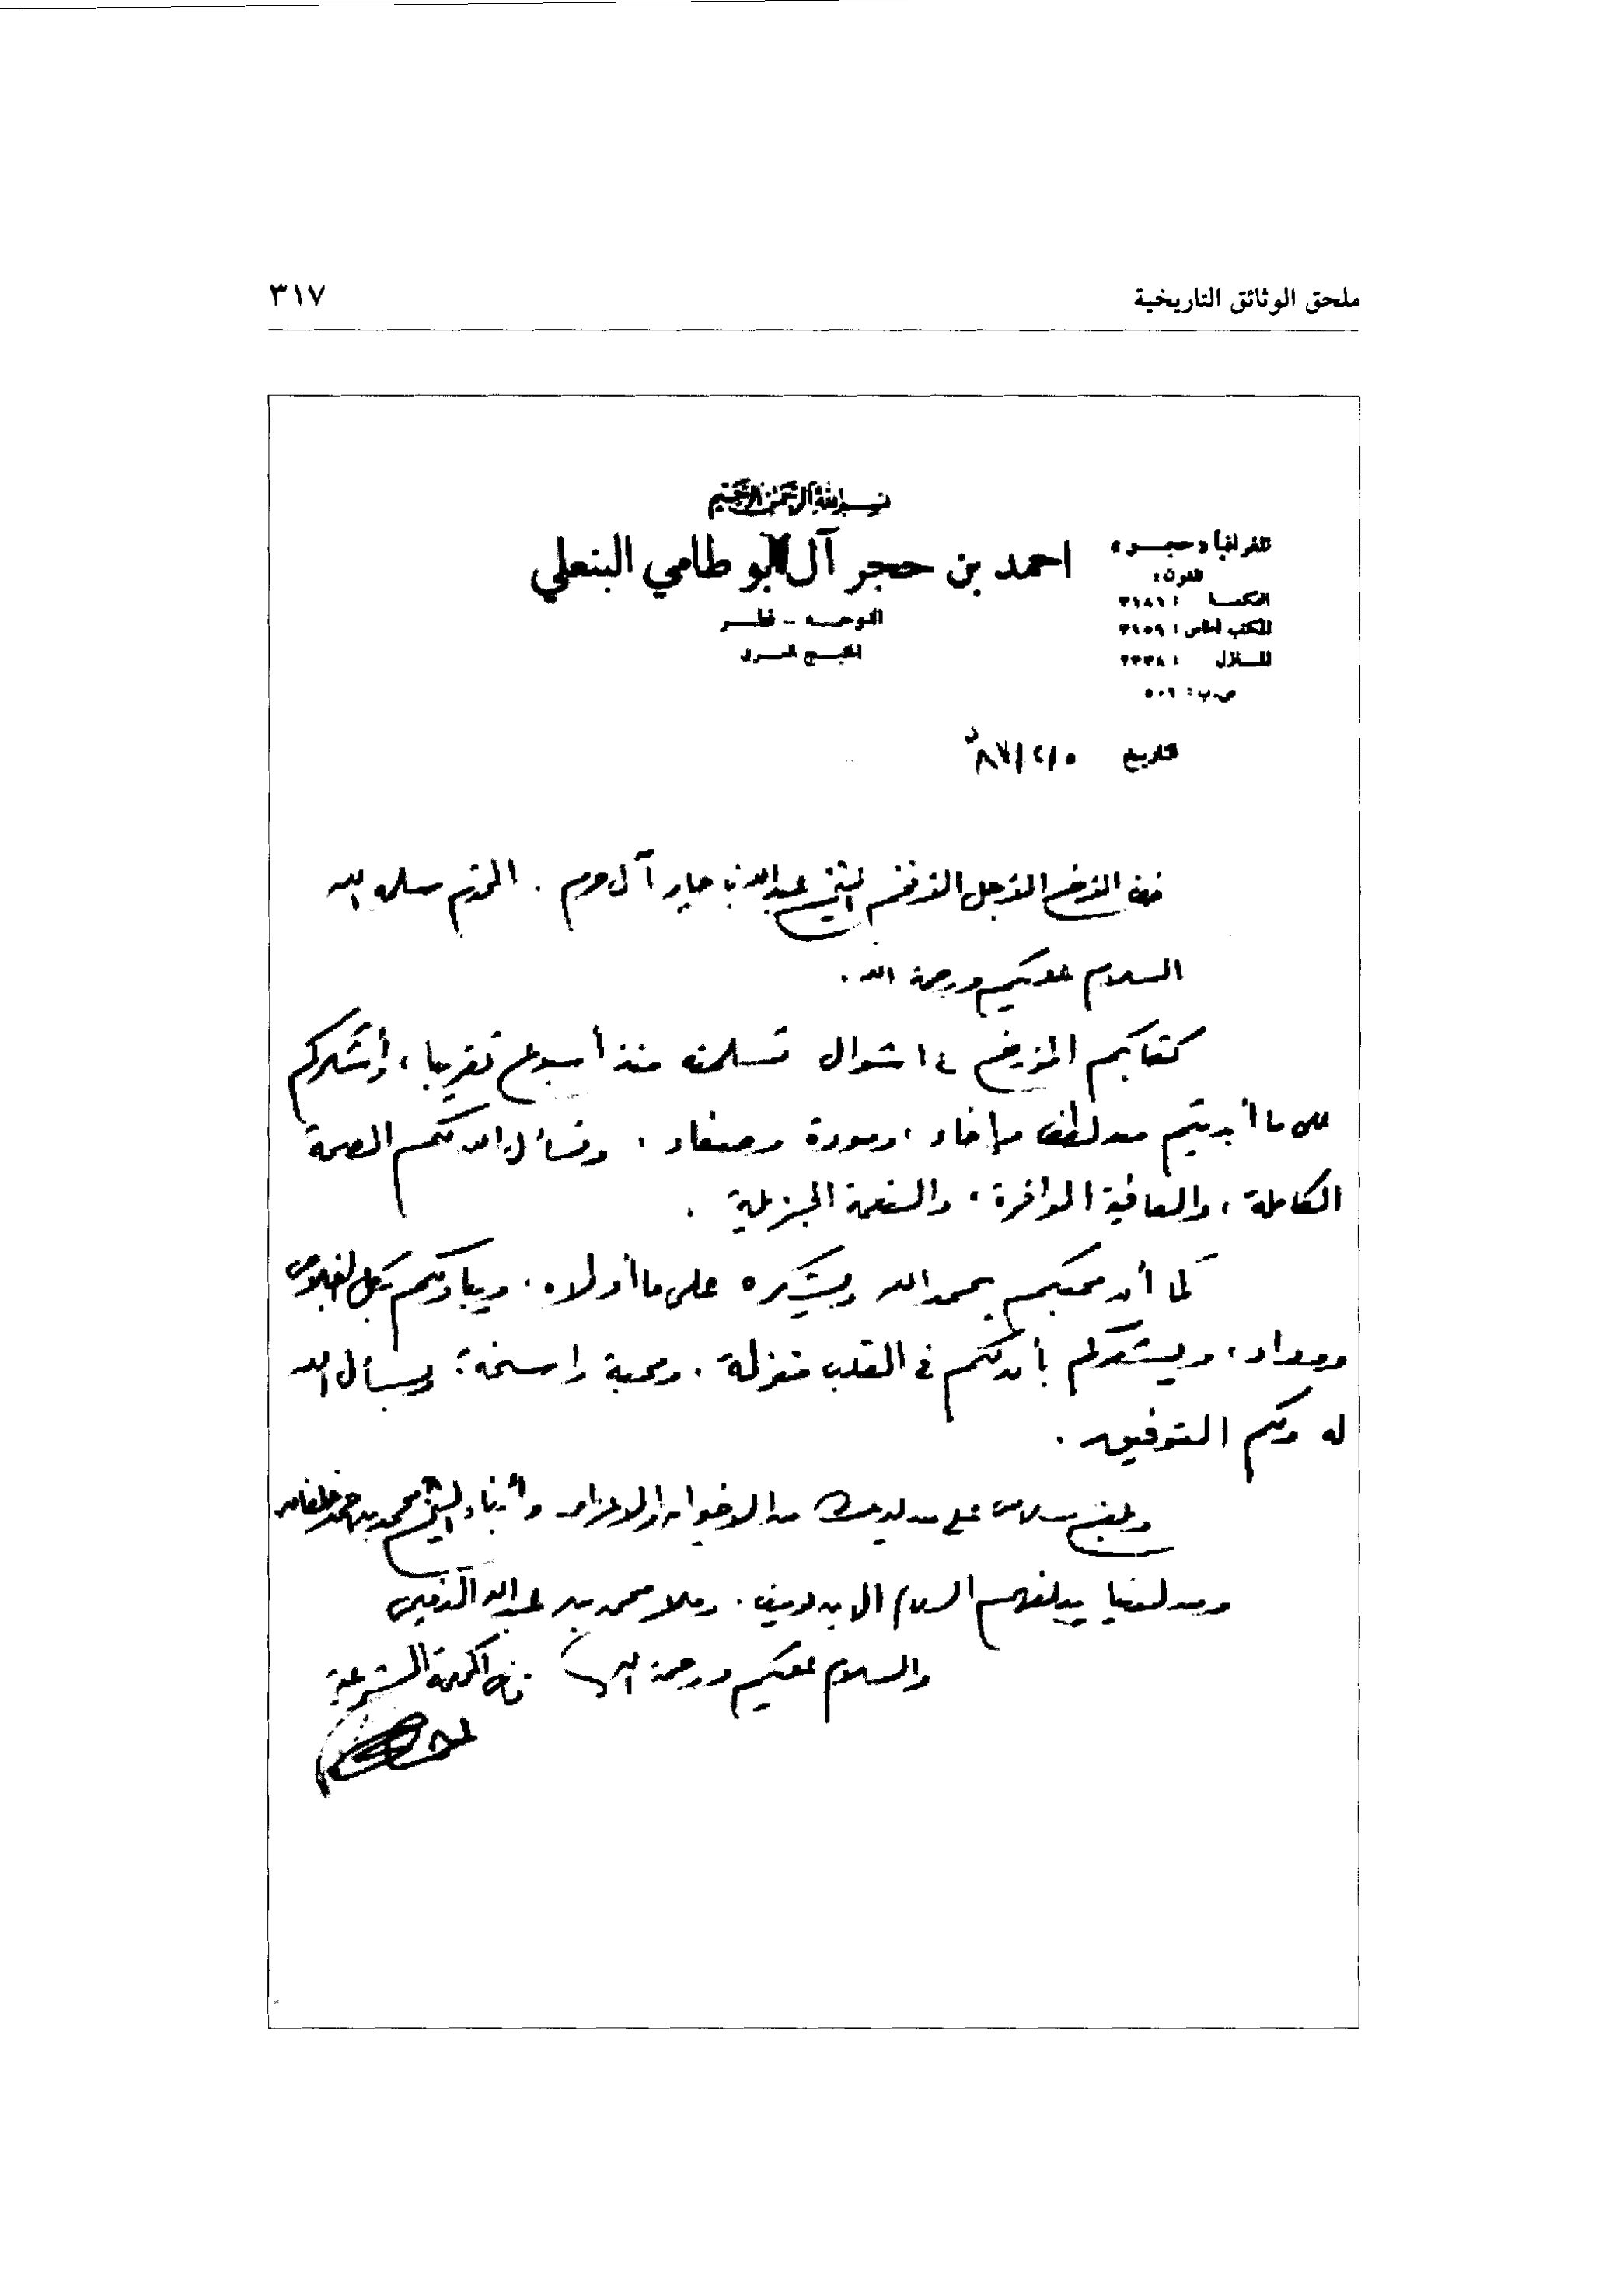 ملحق الوثائق التاريخية ٣١٧
بسم الله الرحمن الرحيم
احمد بن حجر آل أبو طامي البنعلي
الدوحـــه - قطـــر
الخليـــج العـــربي
تلغرافيا « حجـــر »
تلفون :
المحكمـــة : ٣١٨١
المكتب الخاص : ٣١٥٩
المـــنزل : ٢٣٣٨
ص.ب : ٥٠٦
التاريخ ٥/٢/٨٧
الأخ الأجل الأفخم الشيخ عبدالله بن جابر آل حرم . المحترم سلمه الله
السلام عليكم ورحمة الله .
كتابكم المؤرخ ١٤ شوال تسلمته منذ أسبوع تقريبا ، وأشكركم
على ما أبديتم من لطف وإخاء ، ومودة وصفاء . ونسأل الله لكم الصحة
الكاملة ، والعافية الوافرة ، والنعمة الجزيلة .
كما أن محبكم يحمد الله ويشكره على ما أولاه . ويبادلكم بكل إخلاص
ووداد ، ويشعركم بأن لكم في القلب منزلة . ومحبة راسخة ؛ ويسأل الله
له ولكم التوفيق .
وبلغوا سلامي على من لديك من الاخوان والاعزاء وأبناء الشيخ محمد بن
ومن لدينا يبلغهم السلام الابن . وملا محمد بن عبدالله
والسلام عليكم ورحمة الله قاضي المحكمة الشرعية